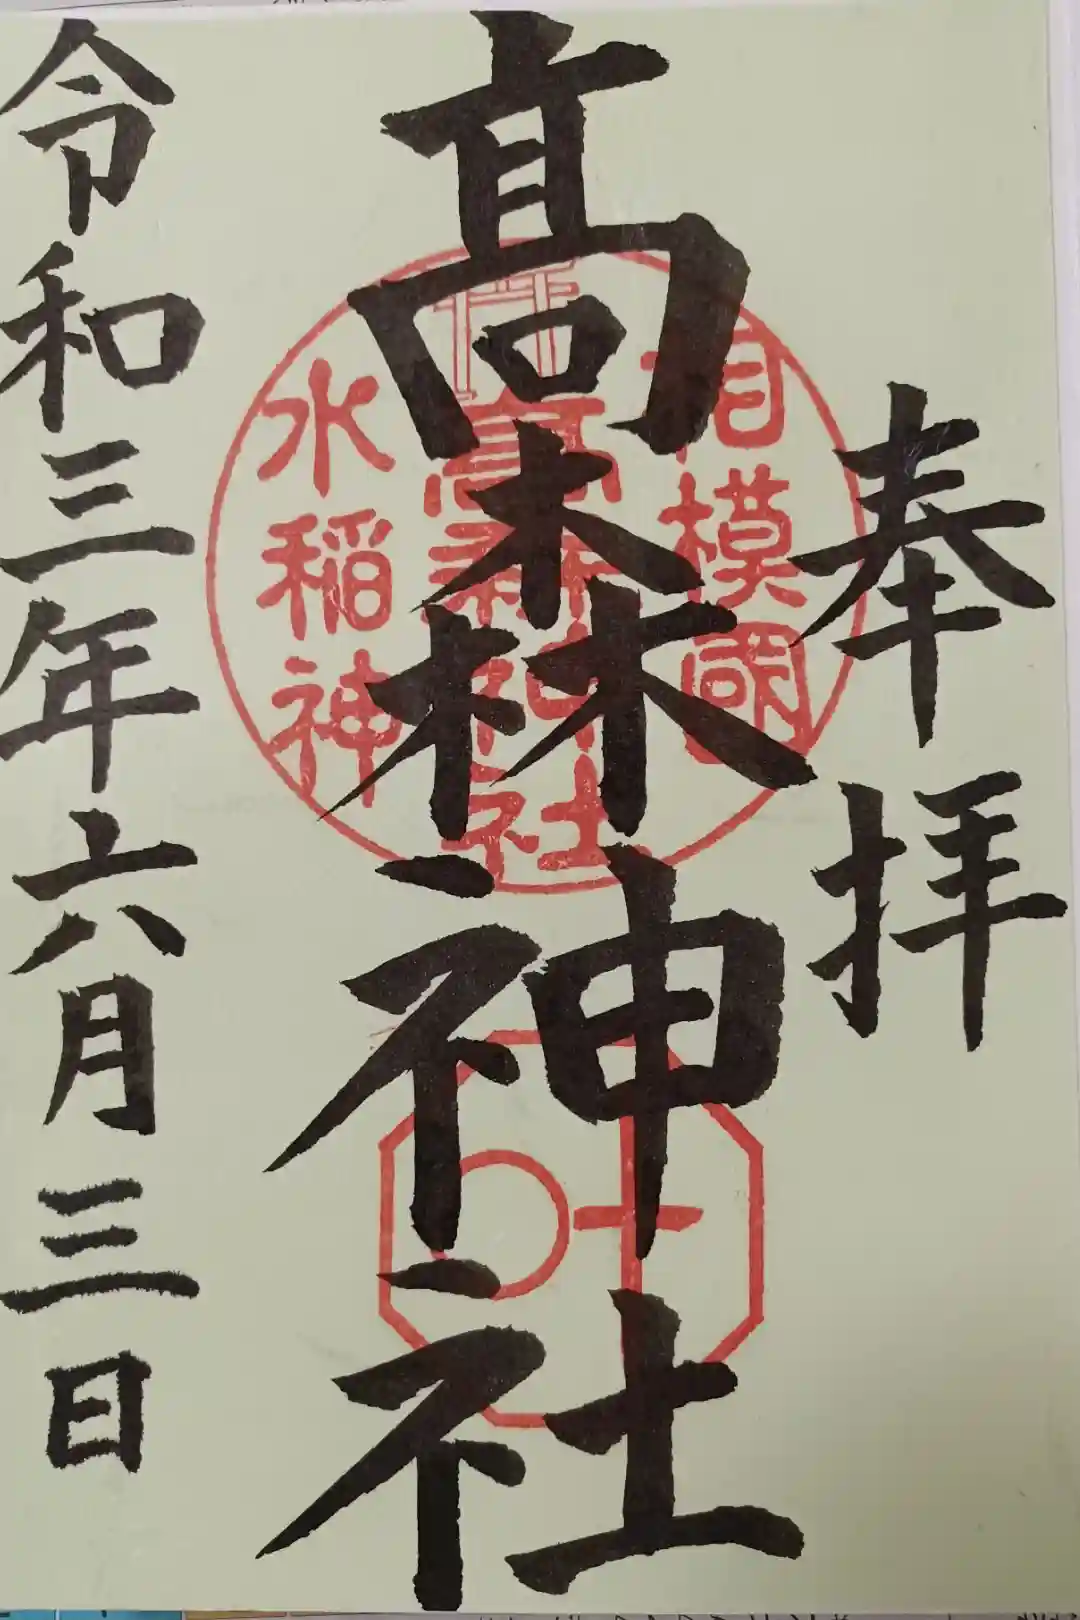 奉拝
髙森神社
相模國
髙森神社
水稲神
令和三年六月三日